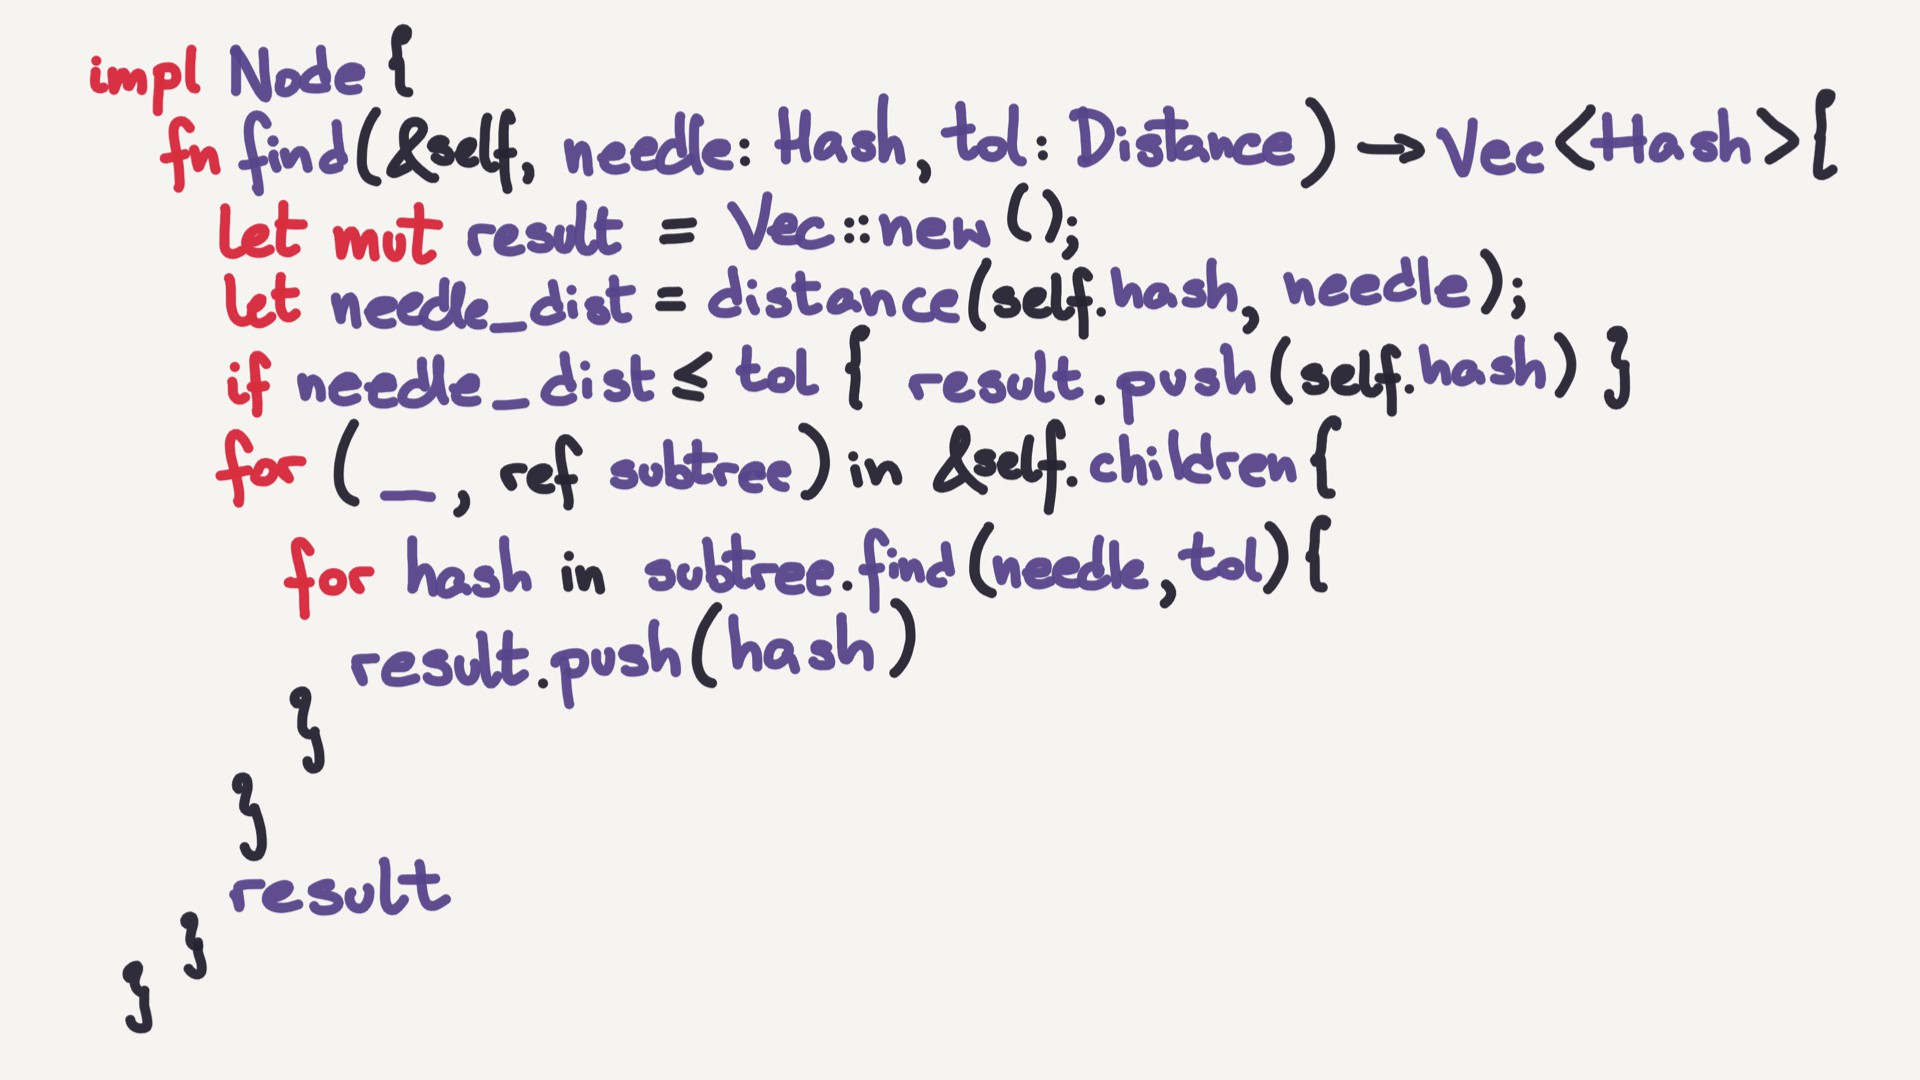 impl Node {
fn find(&self, needle: Hash, tol: Distance) → Vec<Hash>{
let mut result = Vec::new();
let needle_dist = distance(self.hash, needle);
if needle_dist ≤ tol { result.push(self.hash) }
for (_, ref subtree) in &self.children {
for hash in subtree.find(needle, tol) {
result.push(hash)
}
}
result
}
}